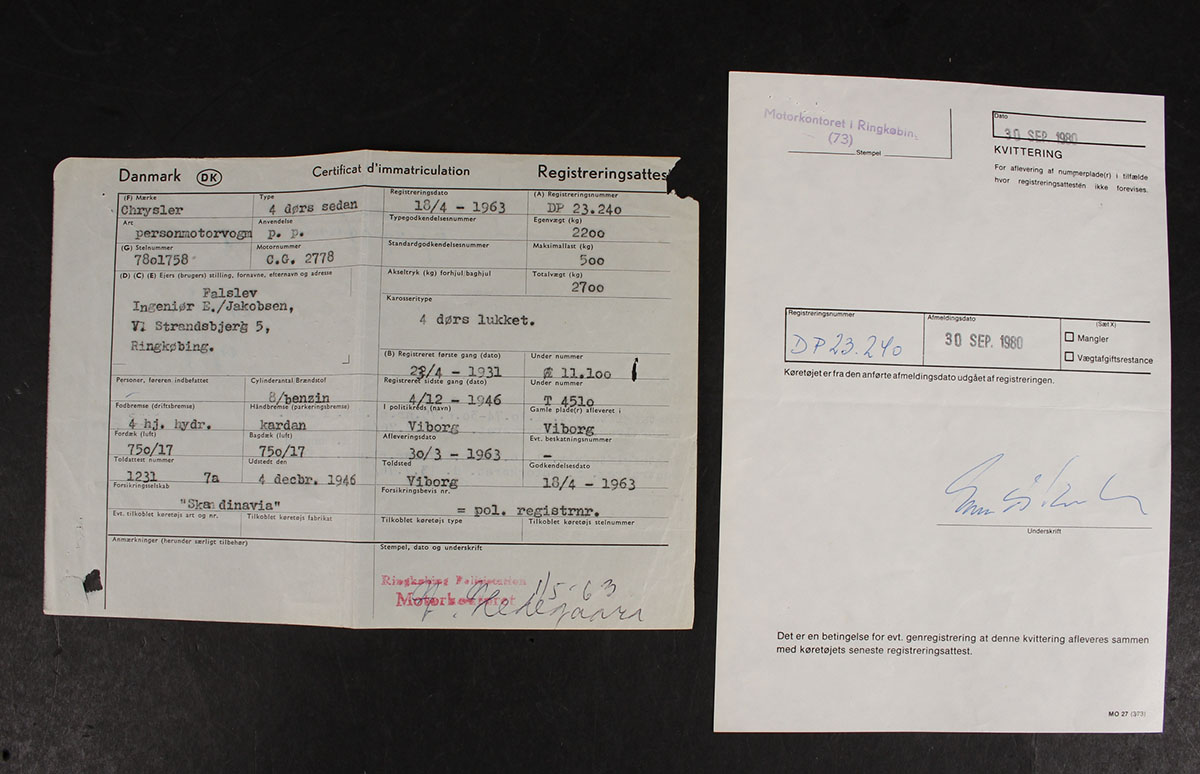 Danmark DK Certificat d'immatriculation Registreringsattes
(F) Mærke Type Registreringsdato (A) Registreringsnummer
Chrysler 4 dørs sedan 18/4 - 1963 DP 23.240
Art Anvendelse Typegodkendelsesnummer Egenvægt (kg)
personmotorvogn p. p. 2200
(G) Stelnummer Motornummer Standardgodkendelsesnummer Maksimallast (kg)
7801758 C.G. 2778 500
(D) (C) (E) Ejers (brugers) stilling, fornavne, efternavn og adresse Akseltryk (kg) forhjul/baghjul Totalvægt (kg)
2700
Falslev
Ingeniør E./Jakobsen,
Vl Strandsbjerg 5,
Ringkøbing.
Karosseritype
4 dørs lukket.
(B) Registreret første gang (dato) Under nummer
/4 - 1931 Æ 11.100
Personer, føreren indbefattet Cylinderantal/Brændstof Registreret sidste gang (dato) Under nummer
8/benzin 4/12 - 1946 T 4510
Fodbremse (driftsbremse) Håndbremse (parkeringsbremse) I politikreds (navn) Gamle plade(r) afleveret i
4 hj. hydr. kardan Viborg Viborg
Fordæk (luft) Bagdæk (luft) Afleveringsdato Evt. beskatningsnummer
750/17 750/17 30/3 - 1963 -
Toldattest nummer Udstedt den Toldsted Godkendelsesdato
1231 7a 4 decbr. 1946 Viborg 18/4 - 1963
Forsikringsselskab Forsikringsbevis nr.
"Skandinavia" = pol. registrnr.
Evt. tilkoblet køretøjs art og nr. Tilkoblet køretøjs fabrikat Tilkoblet køretøjs type Tilkoblet køretøjs stelnummer
Anmærkninger (herunder særligt tilbehør) Stempel, dato og underskrift
Ringkøbing Politistation 1/5-63
Motorkontoret
Motorkontoret i Ringkøbin
(73)
Stempel
Dato
30 SEP. 1980
KVITTERING
For aflevering af nummerplade(r) i tilfælde
hvor registreringsattestén ikke forevises.
Registreringsnummer Afmeldingsdato (Sæt X)
DP 23.240 30 SEP. 1980 Mangler
Vægtafgiftsrestance
Køretøjet er fra den anførte afmeldingsdato udgået af registreringen.
Underskrift
Det er en betingelse for evt. genregistrering at denne kvittering afleveres sammen
med køretøjets seneste registreringsattest.
MO 27 (373)